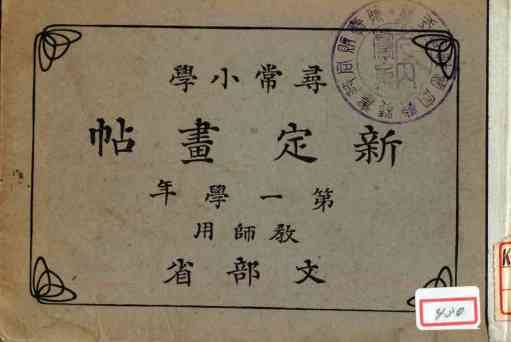 尋常小學
新定畫帖
第一學年
教師用
文部省
430
K